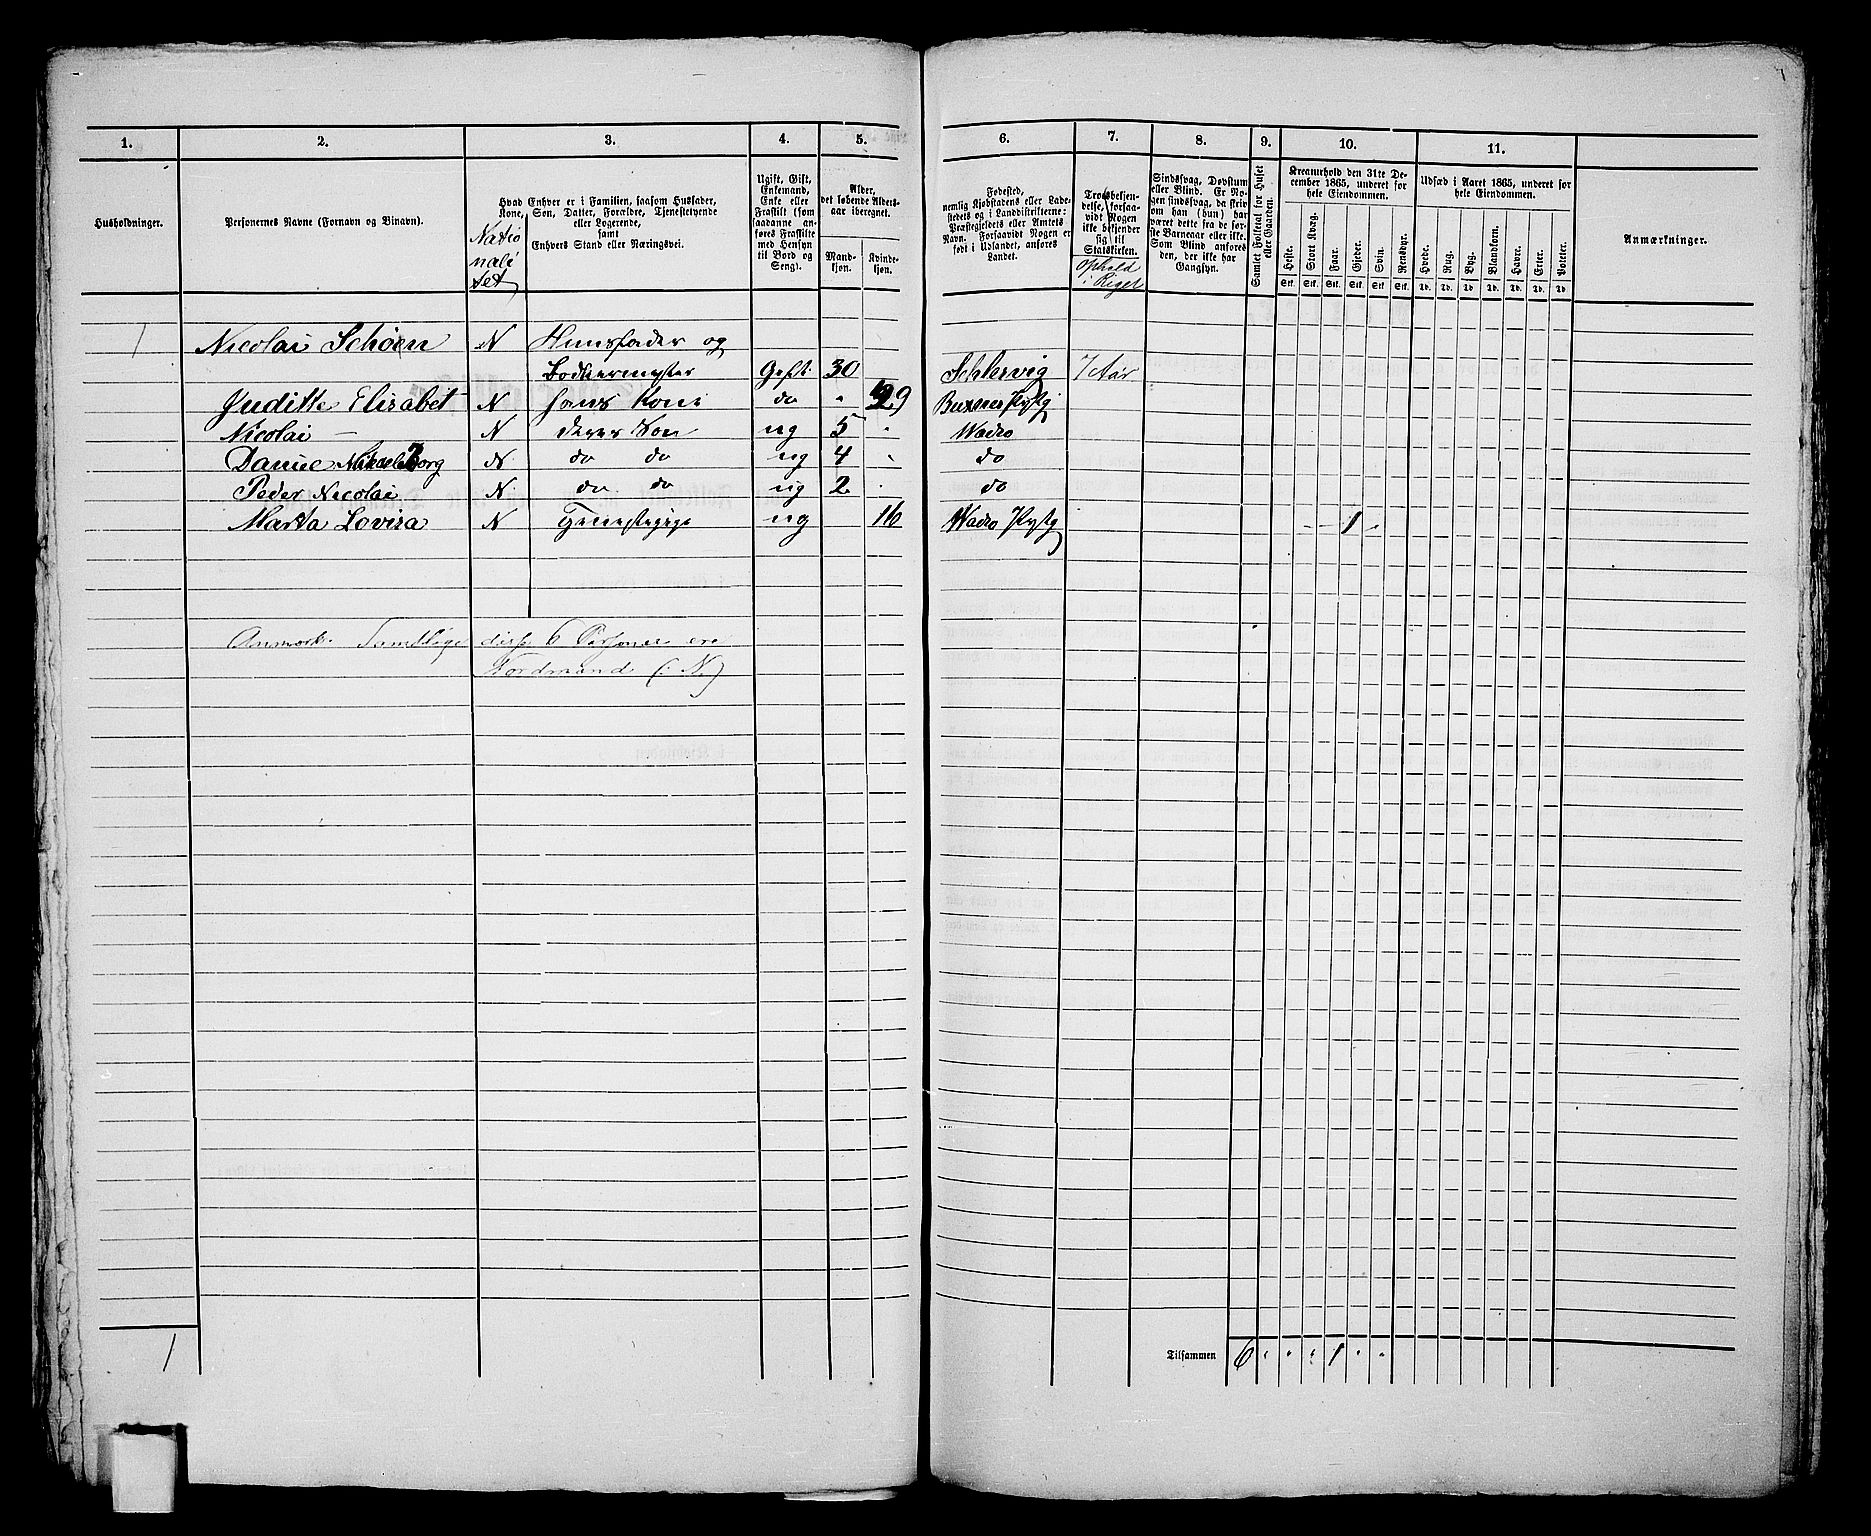 1. 2. 3. 4. 5. 6. 7. 8. 9. 10. 11.
Husholdninger.
Personernes Navne (Fornavn og Binavn).
Hvad Enhver er i Familien, saasom Husfader, Kone, Søn, Datter, Forældre, Tjenestetyende eller Logerende, samt Enhvers Stand eller Næringsvei.
Natio
nali
tet
Ugift, Gift, Enkemand, Enke eller Fraskilt (som saadanne anføres Fraskilte med Hensyn til Bord og Seng).
Alder, det løbende Aldersaar iberegnet.
Mandkjøn. Kvindekjøn.
Fødested, nemlig Kjøbstadens eller Ladestedets og i Landdistrikterne: Præstegjeldets eller Amtets Navn. Forsaavidt Nogen er født i Udlandet, anføres Landet.
Troesbekjendelse, forsaavidt Nogen ikke bekjender sig til Statskirken.
Ophold
i Riget
Sindssvag, Døvstum eller Blind. Er Nogen sindssvag, da skrives om han (hun) har været dette fra de første Barneaar eller ikke. Som Blind anføres den, der ikke har Gangsyn.
Samlet Folketal for Huset eller Gaarden.
Kreaturhold den 31te December 1865, underet for hele Eiendommen.
Heste. Stort Kvæg. Faar. Gjeder. Svin. Rensdyr.
Stk. Stk. Stk. Stk. Stk. Stk.
Udsæd i Aaret 1865, underet for hele Eiendommen.
Hvede. Rug. Byg. Blandkorn. Havre. Erter. Poteter.
Td. Td. Td. Td. Td. Td. Td.
Anmærkninger.
1 Nicolai Schøen N Huusfader og
Bødkermester Gift 30 Schlesvig 7 Aar
Juditte Elisabet N hans Kone do 29
Nicolai — N deres Søn ug 5 Wadsø
Danie Mikaelsborg N do do ug 4 do
Peder Nicolai N do do ug 2 do
Marta Lovisa N Tjenestepige ug 16 Wadsø 1
Anmærk. Samtlige disse 6 Personer ere
Nordmænd (: N.)
1
Tilsammen 6 1